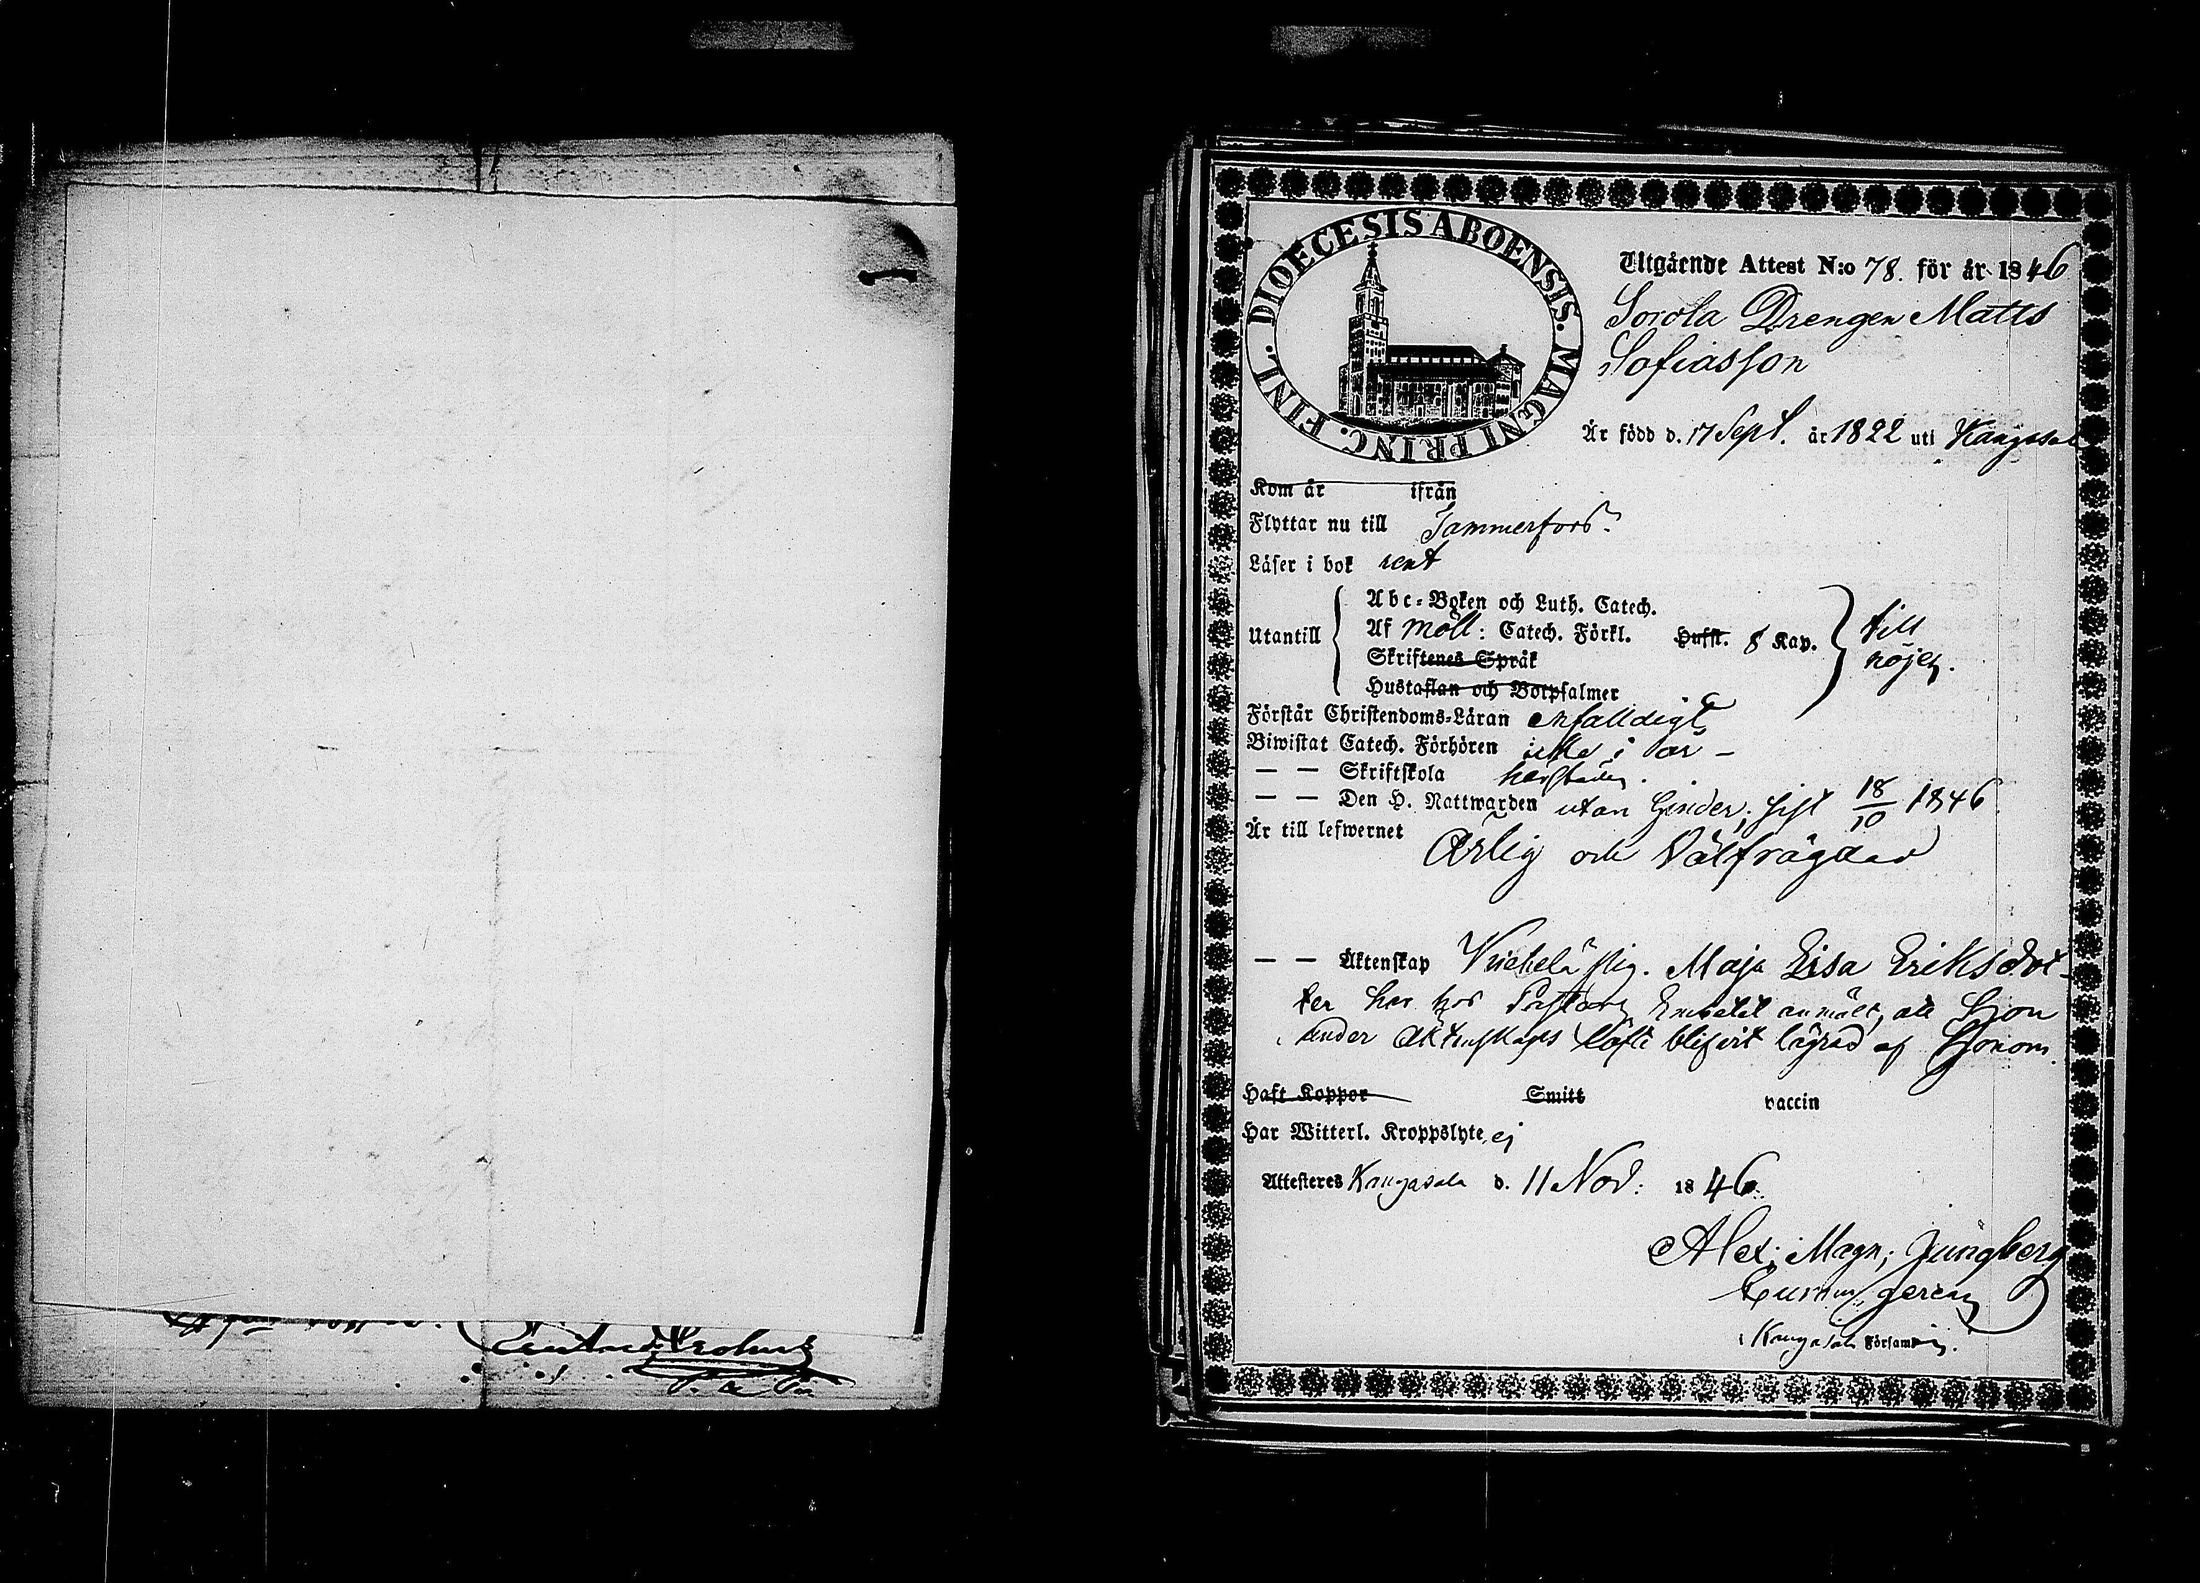 DIOECESIS ABOENSIS. MAGNI PRINC. FINL.
Utgående Attest N:o 78. för år 1846
Sorola Drengen Matts
Sofiasson
Är född d. 17 Sept. år 1822 uti Kangasal
Kom år ifrån
Flyttar nu till Tammerfors.
Läser i bok rent
Utantill
Abc-Boken och Luth. Catech.
Af Möll: Catech. Förkl. Hufst. 8 Kap.
Skriftenes Språk
Hustaflan och Botpsalmer
till
nöjes.
Förstår Christendoms-Läran enfalldigt
Biwistat Catech. Förhören icke i år
— — Skriftskola härstädes.
— — Den H. Nattwarden utan hinder, sist 18/10 1846.
Är till lefwernet
Ärlig och Välfrägdad
— — Äktenskap Maja Lisa Eriksdot-
ter har hos Pastors Embetet anmält, att Hon
under Äktenskaps löfte blifvit lägrad af Honom.
Haft Koppor Smitt vaccin
Har Witterl. Kroppslyte, ej
Attesteres Kangasala d. 11 Nov: 1846.
Alex: Magn; Ljungberg
i Kangasala Församl.